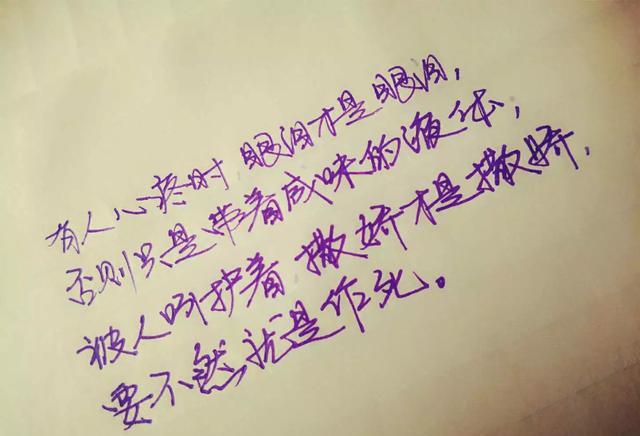 有人心疼时 眼泪才是眼泪，
否则只是带着咸味的液体，
被人呵护着 撒娇才是撒娇，
要不然就是作死。